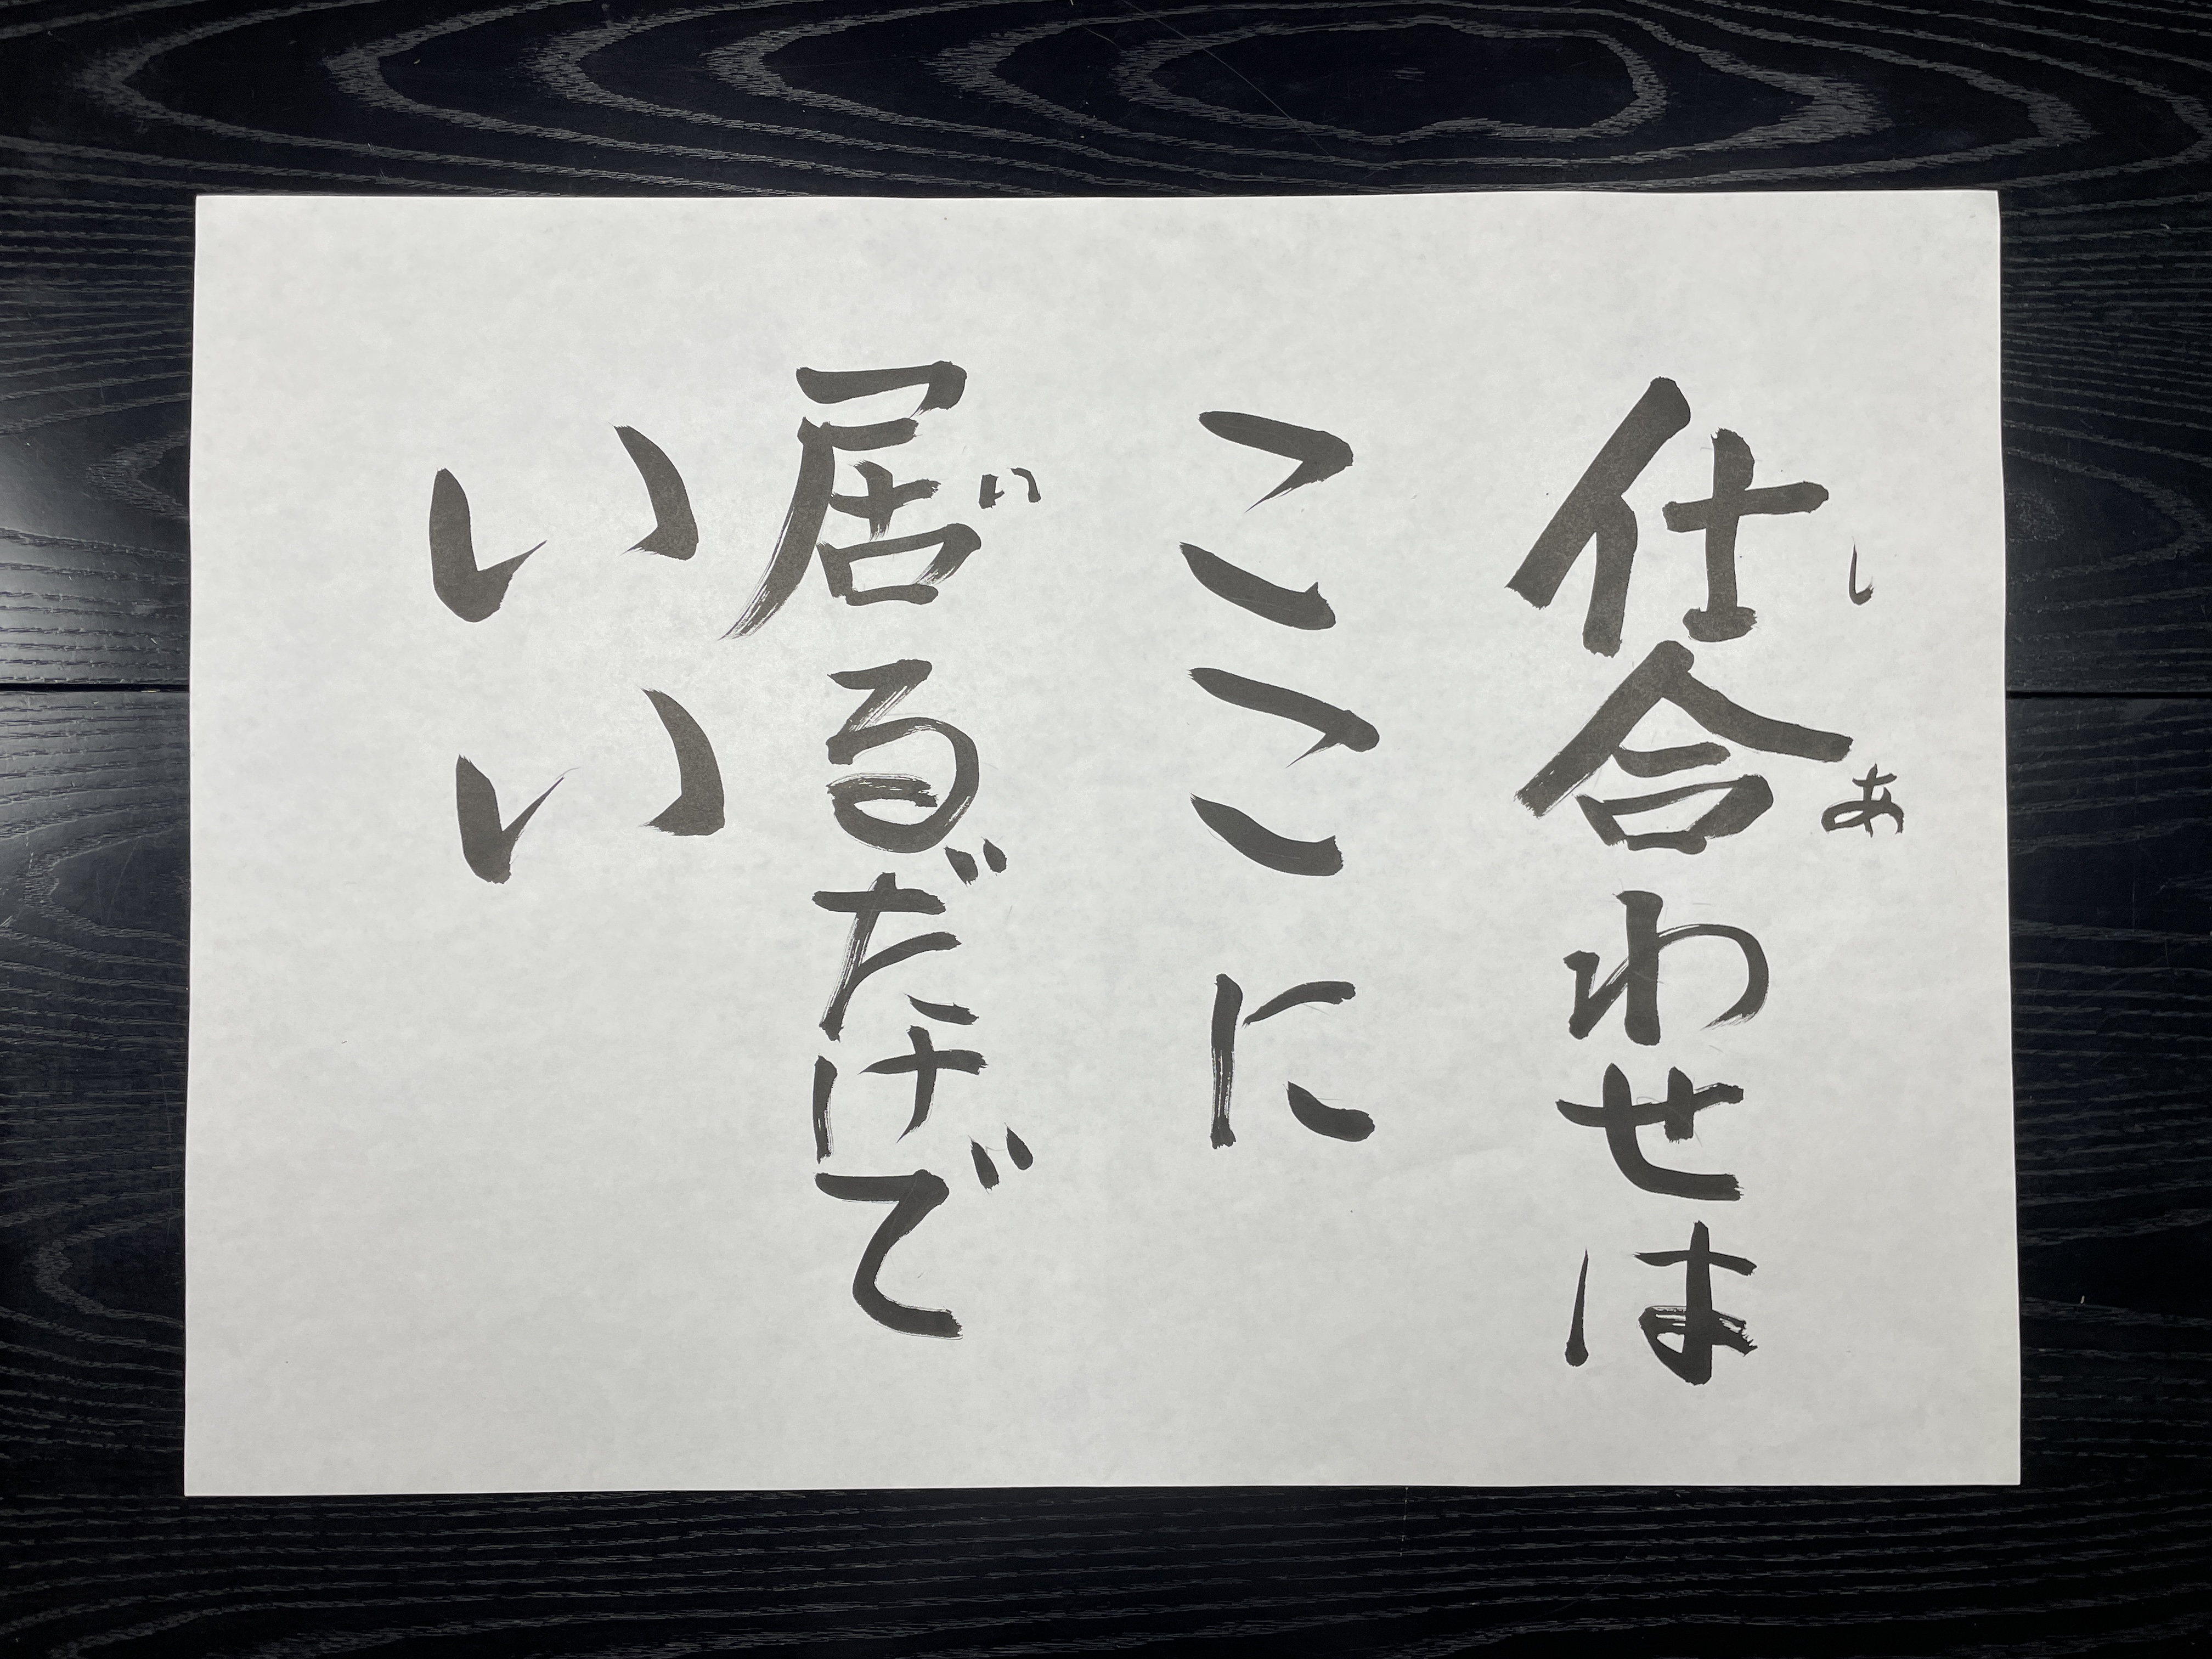 仕合わせは
ここに
居るだけで
いい
し
あ
い